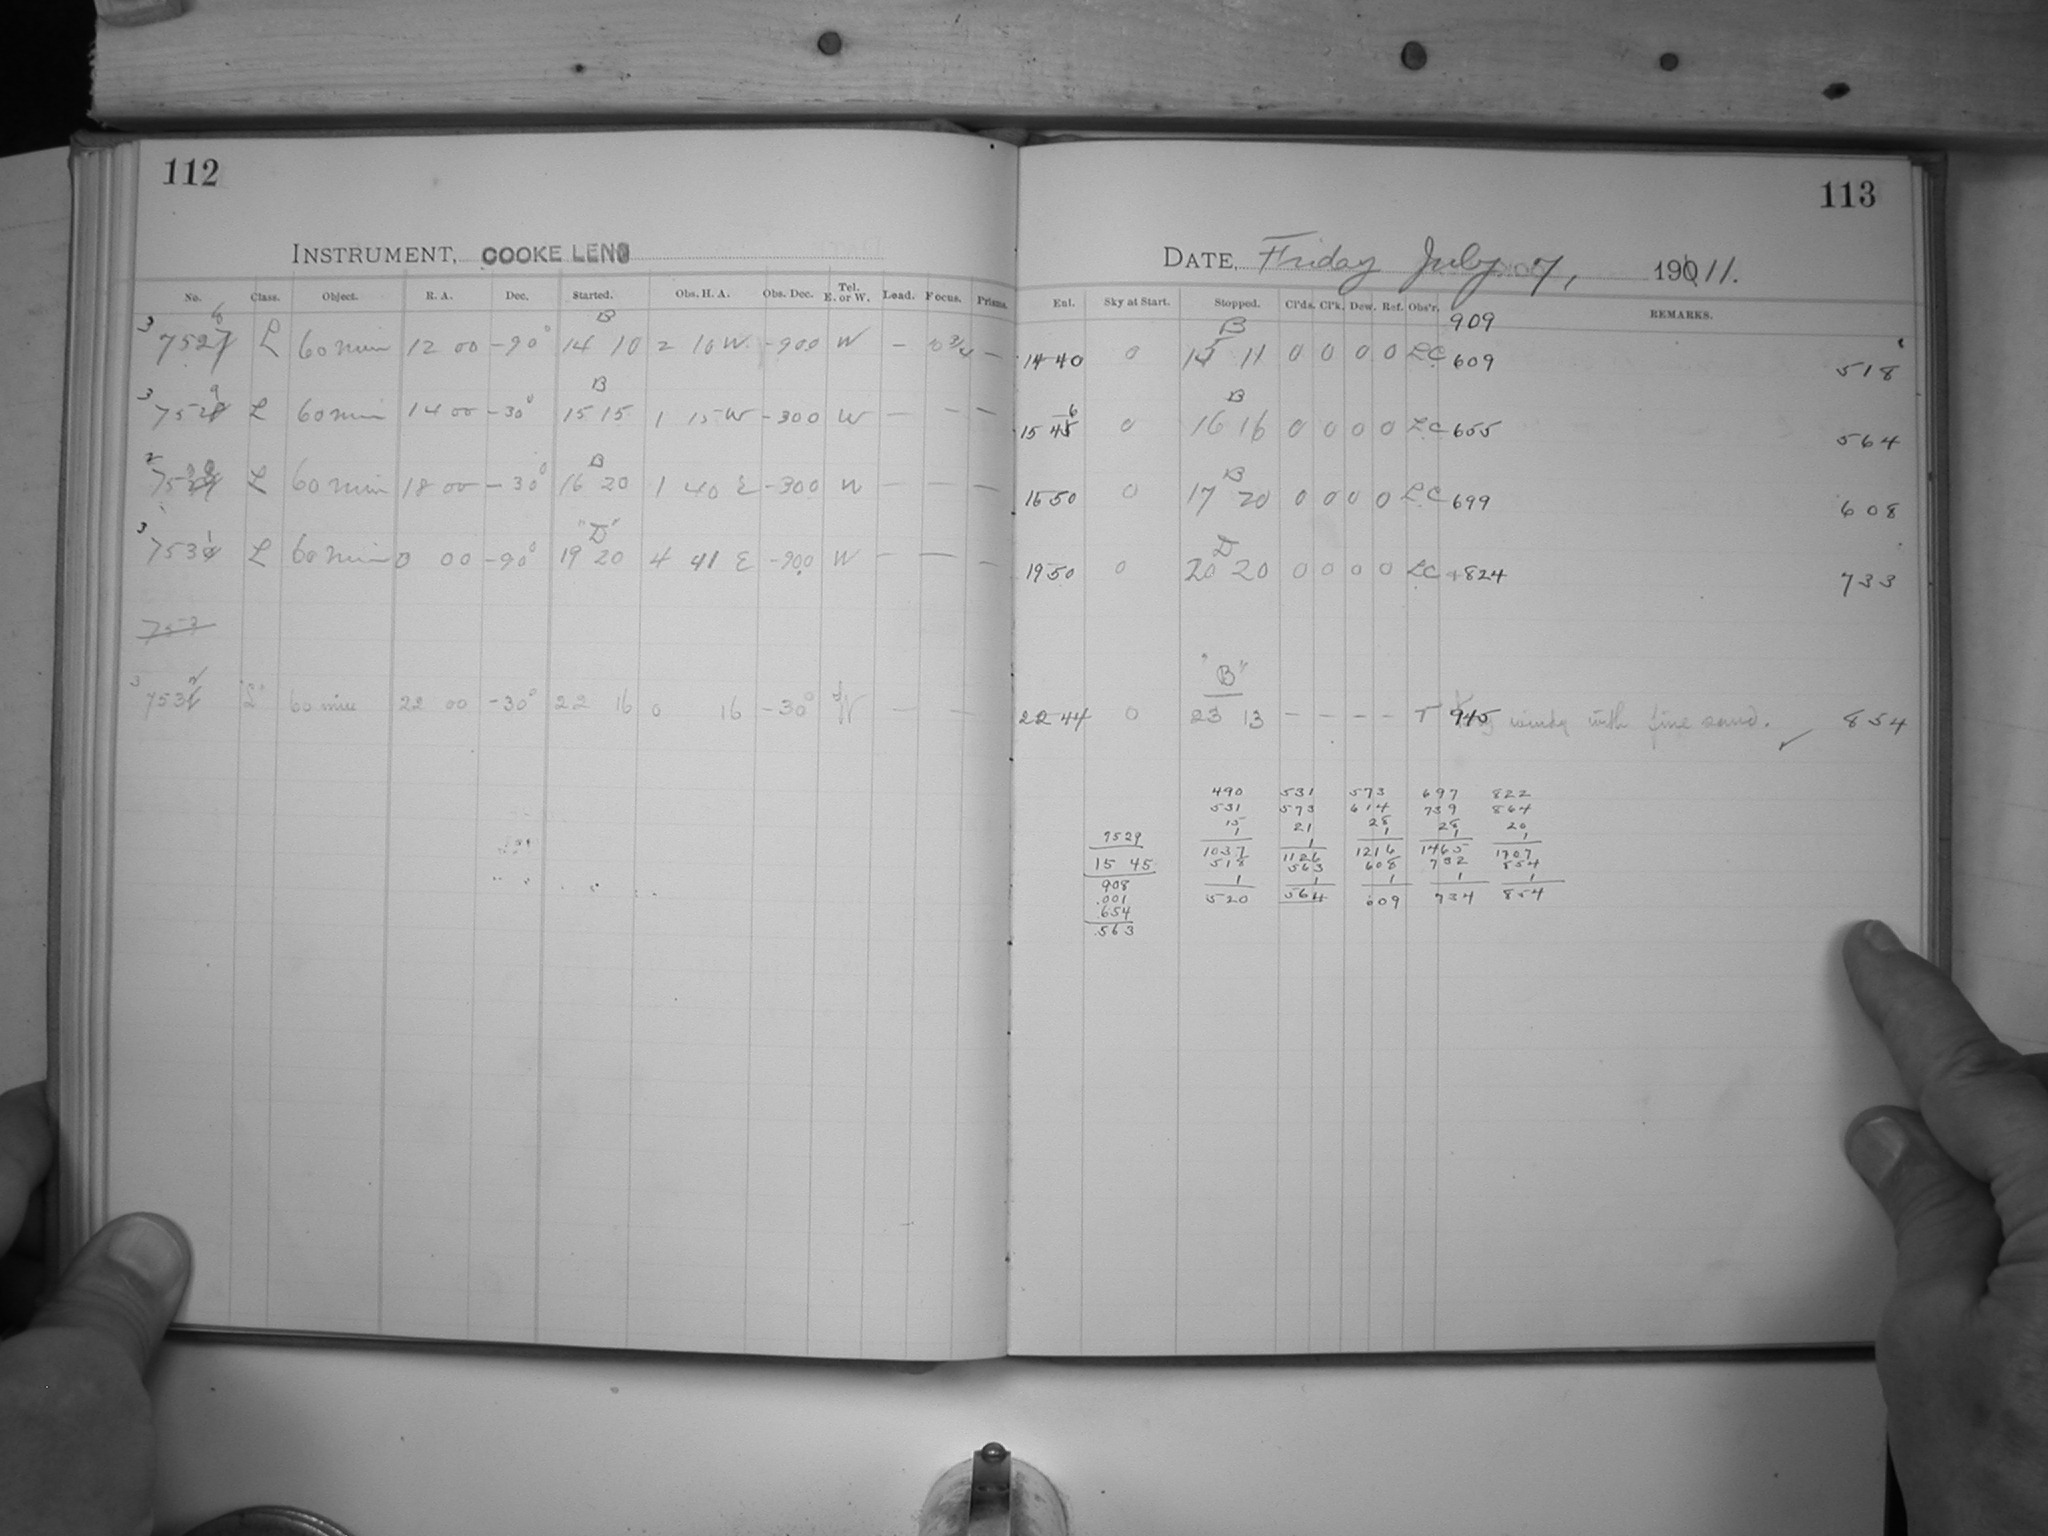 112
INSTRUMENT, COOKE LENS
No. Class. Object. R. A. Dec. Started. Obs. H. A. Obs. Dec. Tel. E. or W. Load. Focus. Prisms.
B
3 7528 L 60 min 12 00 -90° 14 10 2 10 W -90 0 W - 0 3/4 -
B
3 7529 L 60 min 14 00 -30° 15 15 1 15 W -30 0 W - - -
B
2 7530 L 60 min 18 00 -30° 16 20 1 40 E -30 0 W - - -
"D"
3 7531 L 60 min 0 00 -90° 19 20 4 41 E -90 0 W - - -
753
3 7532 L 60 min 22 00 -30° 22 16 0 16 -30° W - -
113
DATE, Friday July 7, 1911.
Eul. Sky at Start. Stopped. Cl'ds. Cl'k. Dew. Ref. Obs'r. REMARKS.
909
B
14 40 0 15 11 0 0 0 0 LC 609 518
6
B
15 45 0 16 16 0 0 0 0 LC 655 564
B
16 50 0 17 20 0 0 0 0 LC 699 608
D
19 50 0 20 20 0 0 0 0 LC 824 733
"B"
22 44 0 23 13 - - - - T 945 windy with fine sand. ✓ 854
490 531 573 697 822
531 573 614 739 864
15 21 28 28 20
7529 1 1 1 1 1
1037 1126 1216 1465 1707
15 45 518 563 608 732 854
908 1 1 1 1 1
.001 520 564 609 734 854
.654
.563